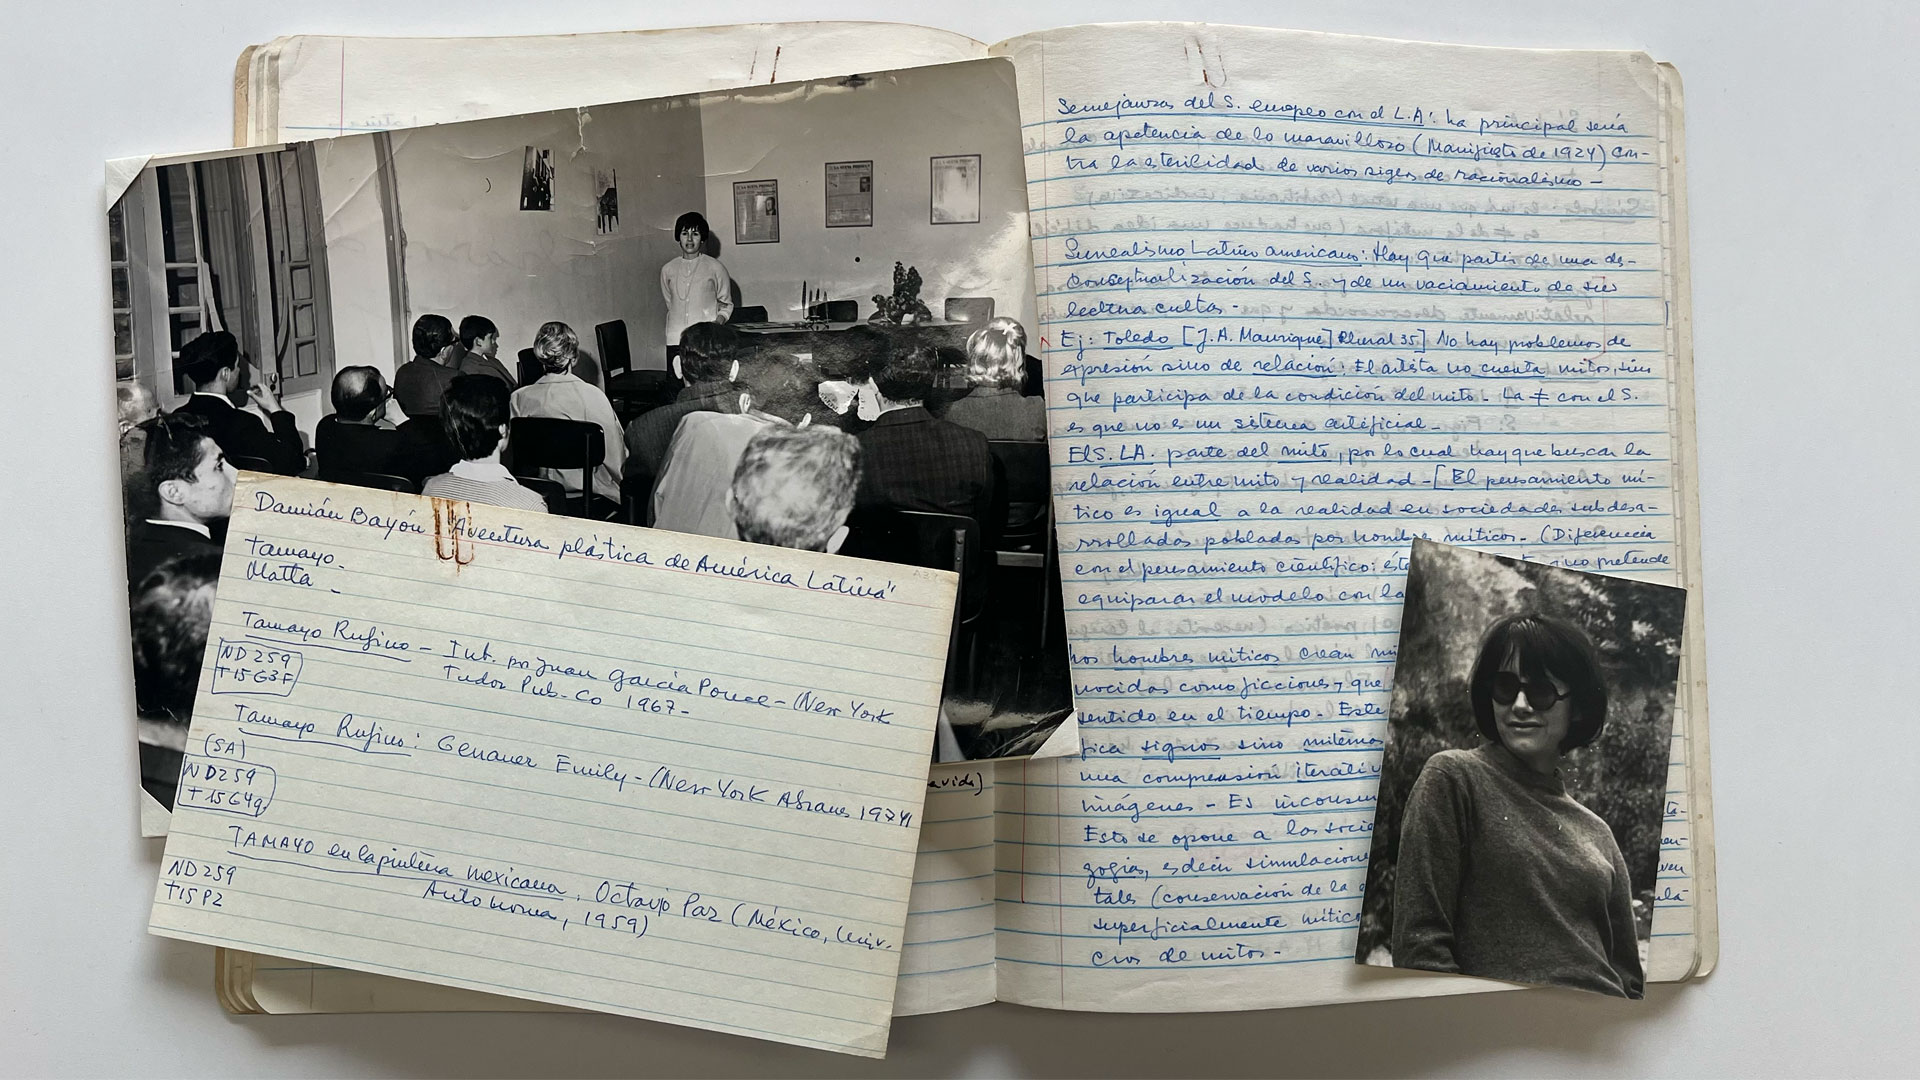 Damián Bayón "Aventura plástica de América Latina"
Tamayo -
Matta -
Tamayo Rufino - Int. por Juan García Ponce - (New York
Tudor Pub. Co 1967 -
ND259
T15G3F
Tamayo Rufino: Genauer Emily - (New York Abrams 1974)
(SA)
ND259
T15G4g
TAMAYO en la pintura mexicana, Octavio Paz (México, Univ.
Autónoma, 1959)
ND259
T15P2
Semejanzas del S. europeo con el L.A: La principal sería
la apetencia de lo maravilloso (Manifiesto de 1924) con-
tra la esterilidad de varios siglos de racionalismo -
Surrealismo Latinoamericano: Hay que partir de una des-
conceptualización del S. y de un vaciamiento de sus
lectura cultas -
Ej: Toledo [J.A. Manrique] Plural 35] No hay problemas de
expresión sino de relación: El artista no cuenta mitos, sino
que participa de la condición del mito - La ≠ con el S.
es que no es un sistema artificial -
El S. LA. parte del mito, por lo cual hay que buscar la
relación entre mito y realidad - [El pensamiento mí-
tico es igual a la realidad en sociedades subdesa-
rrolladas pobladas por hombres míticos - (Diferencia
con el pensamiento científico: éste no pretende
equiparar el modelo con la
Los hombres míticos crean
nocidas como ficciones y que
sentido en el tiempo - Este
fica signos sino mitemas
una comprensión iterativ
imágenes - Es
Esto se opone a las socie
gogías, es decir simulacione
tales (conservación de la
superficialmente mítico
cios de mitos -